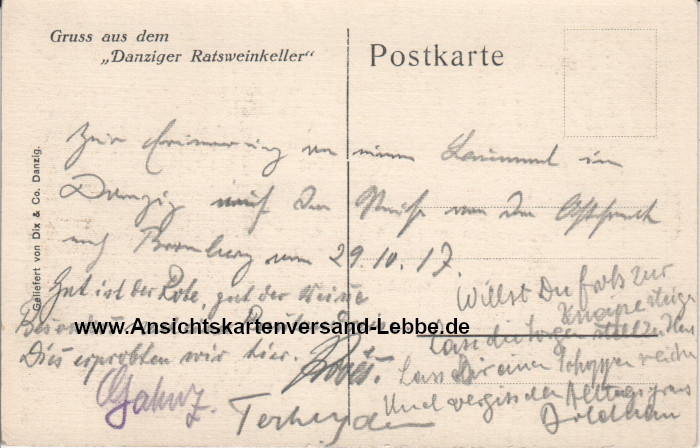 Gruss aus dem
„Danziger Ratsweinkeller"
Postkarte
Geliefert von Dix & Co. Danzig.
Zur Erinnerung an einen
in
Danzig auf der Reise von der Ostfront
nach Bromberg vom 29.10.17.
Gut ist der Rote, gut der Weisse
Dies erprobten wir hier.
Willst Du froh zur
Kneipe steigen
Lass die Sorgen
Lass Dir einen Schoppen reichen
Und vergiss den Alltags
www.Ansichtskartenversand-Lebbe.de